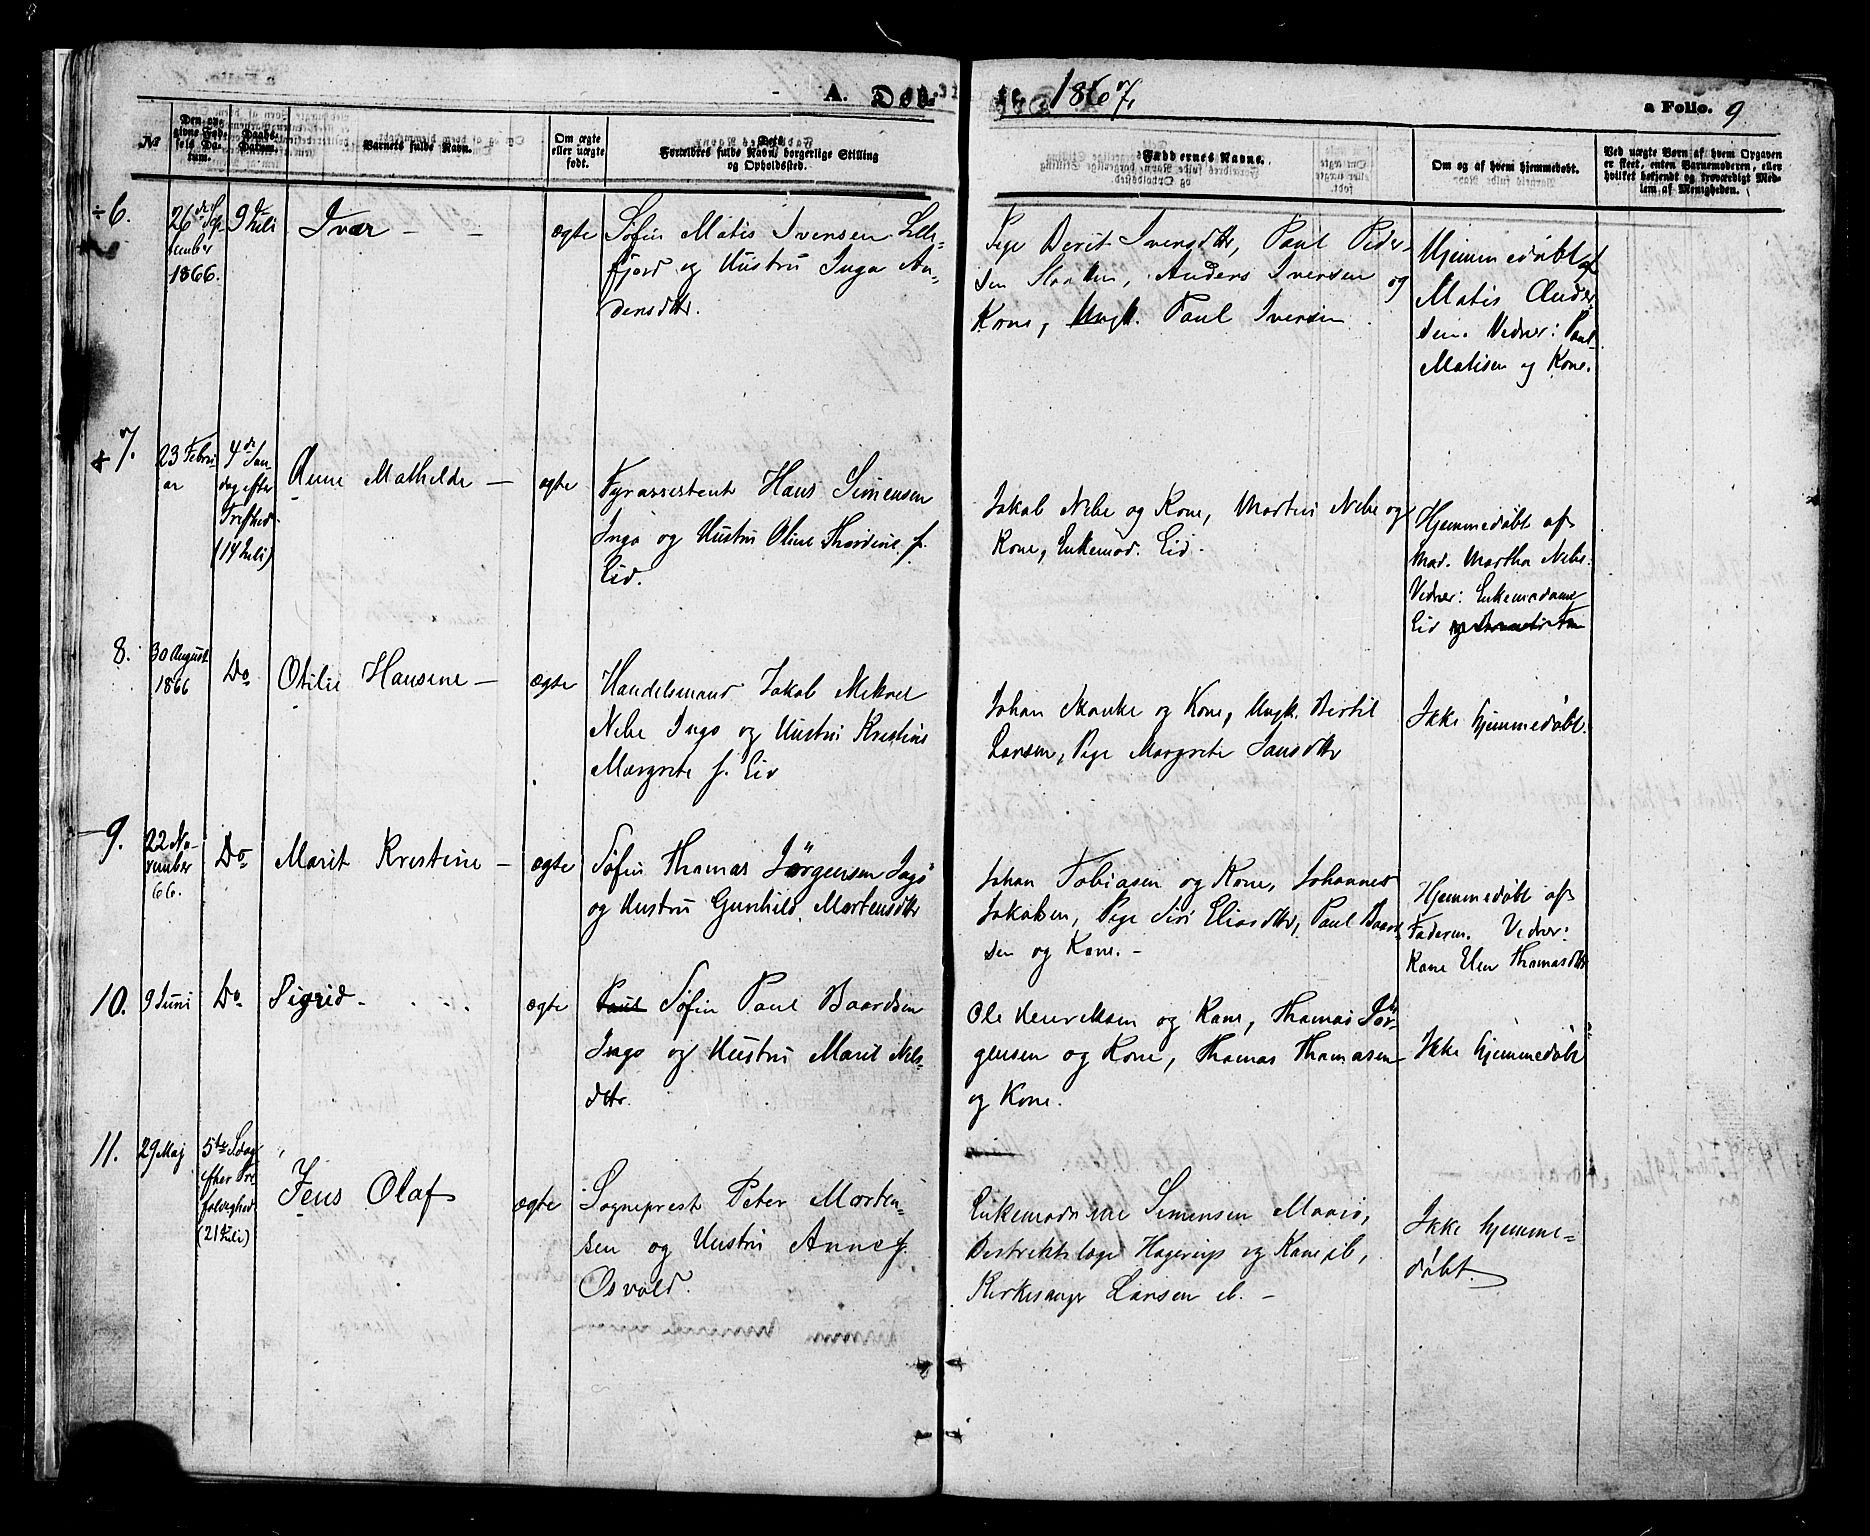 A. Døb 1867. a Folio. 9
№
Den angivne Fødsels Datum.
Daabs-Datum.
Barnets fulde Navn.
Om ægte eller uægte født.
Forældres fulde Navn, borgerlige Stilling og Opholdssted.
Faddernes Navne.
Om og af hvem hjemmedøbt.
Ved uægte Børn af hvem Opgaven er skeet, enten Barnemoderen, eller hvilket bekjendt og troværdigt Medlem af Menigheden.
÷ 6.
26de Sep
tember
1866.
9 Juli
Ivar
ægte
Søfin Matis Iversen Lille-
fjord og Hustru Inga An-
dersdtr.
Pige Berit Iversdtr, Paul Peder-
sen Slotten, Anders Iversen og
Kone, Ungk. Paul Iversen
Hjemmedøbt af
Matis Ander-
sen. Vidner: Paul
Matisen og Kone.
7.
23 Febru
ar
4de Søn-
dag efter
Trefhed.
(14 Juli)
Anne Mathilde —
ægte
Fyrassistent Hans Simensen
Ingø og Hustru Oline Thordine f.
Eid.
Jakob Nebe og Kone, Martin Nebe og
Kone, Enkemad. Eid.
Hjemmedøbt af
Mad. Martha Nebe.
Vidner: Enkemadame
Eid
8.
30 August
1866
Do
Otilie Hansine —
ægte
Handelsmand Jakob Mikael
Nebe Ingø og Hustru Kristine
Margrete f. Eid
Johan Manke og Kone, Ungk. Bertil
Larsen, Pige Margrete Jansdtr
Ikke hjemmedøbt.
9.
22 No-
vember
66.
Do
Marit Kristine —
ægte
Søfin Thomas Jörgensen Ingö
og Hustru Gunhild Mortensdtr
Johan Tobiasen og Kone, Johannes
Jakobsen, Pige Siri Eliasdtr, Paul Baard
sen og Kone. —
Hjemmedøbt af
Faderen. Vidner:
Kone Elen Thomasdtr
10.
9 Juni
Do
Sigrid
ægte
Paul Søfin Paul Baardsen
Ingø og Hustru Marit Nils-
dtr.
Ole Henriksen og Kone, Thomas Jör-
gensen og Kone, Thomas Thomasen
og Kone.
Ikke hjemmedøbt
11.
29 Maj
5te Sdag
efter Tre
foldighed
(21 Juli)
Jens Olaf
ægte
Sogneprest Peter Morten-
sen og Hustru Anne f.
Osvold.
Enkemadame Simensen Maasø,
Distriktslæge Hagerup og Kone ib.,
Kirkesanger Larsen ib. —
Ikke hjemme-
døbt.